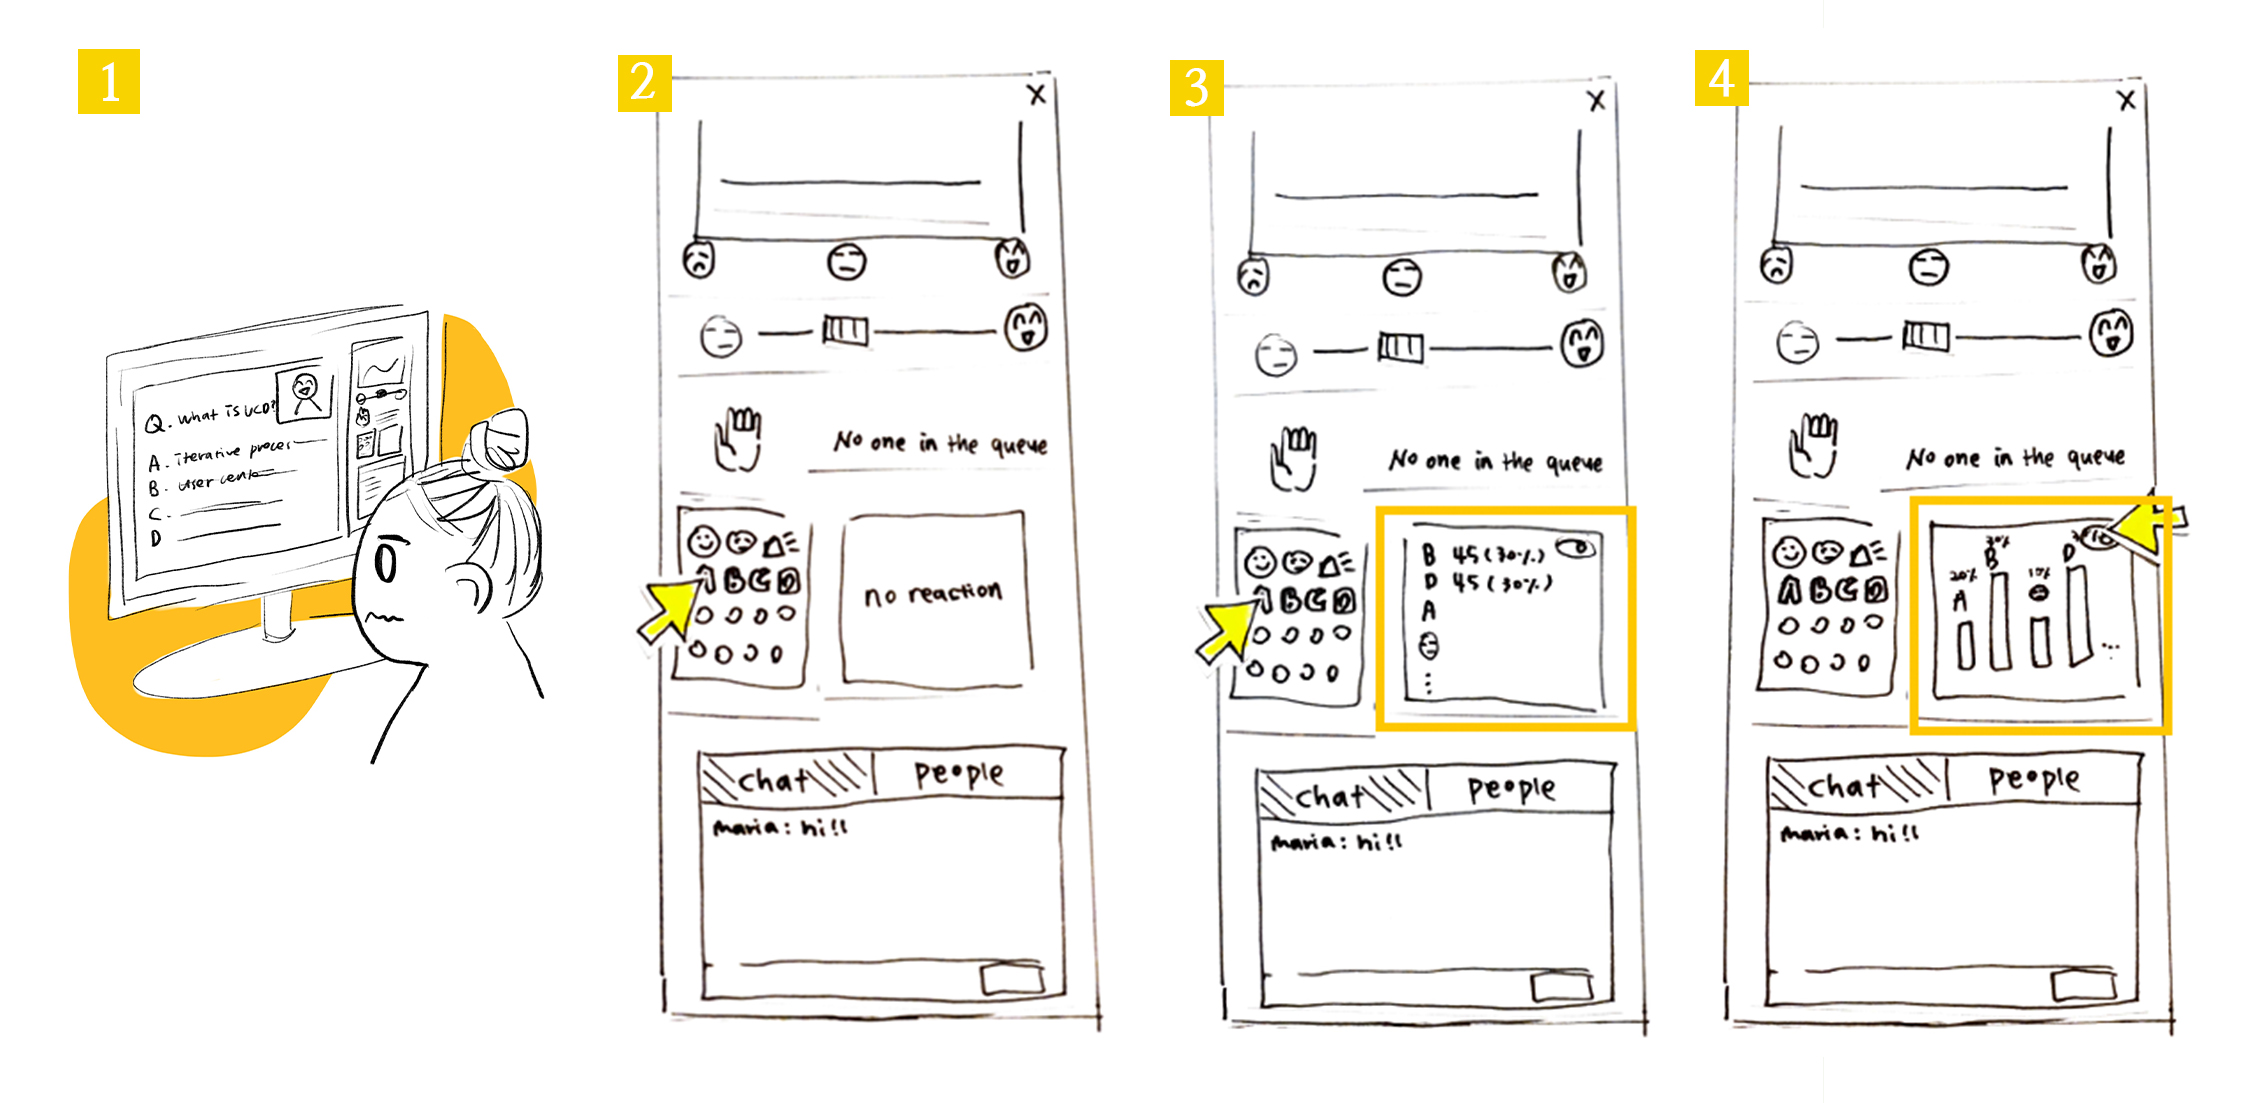 1
Q. What is UCD?
A. iterative proces
B. user cente
C.
D
2
X
No one in the queue
A B C D
no reaction
chat people
maria: hi!!
3
X
No one in the queue
A B C D
B 45 (30%)
D 45 (30%)
A
chat people
maria: hi!!
4
X
No one in the queue
A B C D
20% A
30% B
10%
D
chat people
maria: hi!!